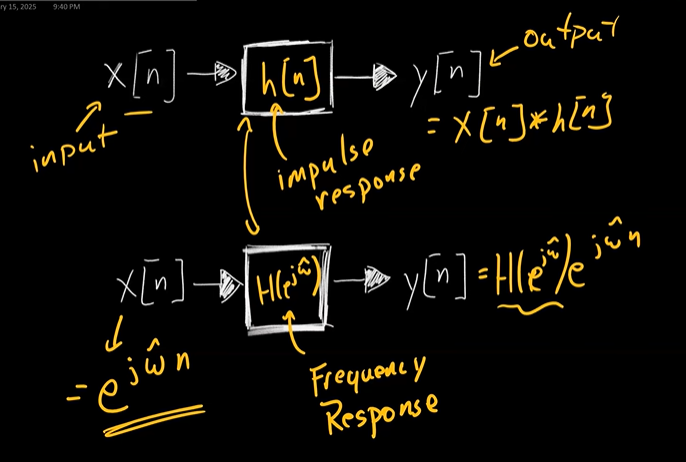 ry 15, 2025 9:40 PM
output
x[n] → h[n] → y[n]
= x[n]*h[n]
input
impulse
response
x[n] → H(e^{jω̂}) → y[n] = H(e^{jω̂})e^{jω̂n}
= e^{jω̂n}
Frequency
Response